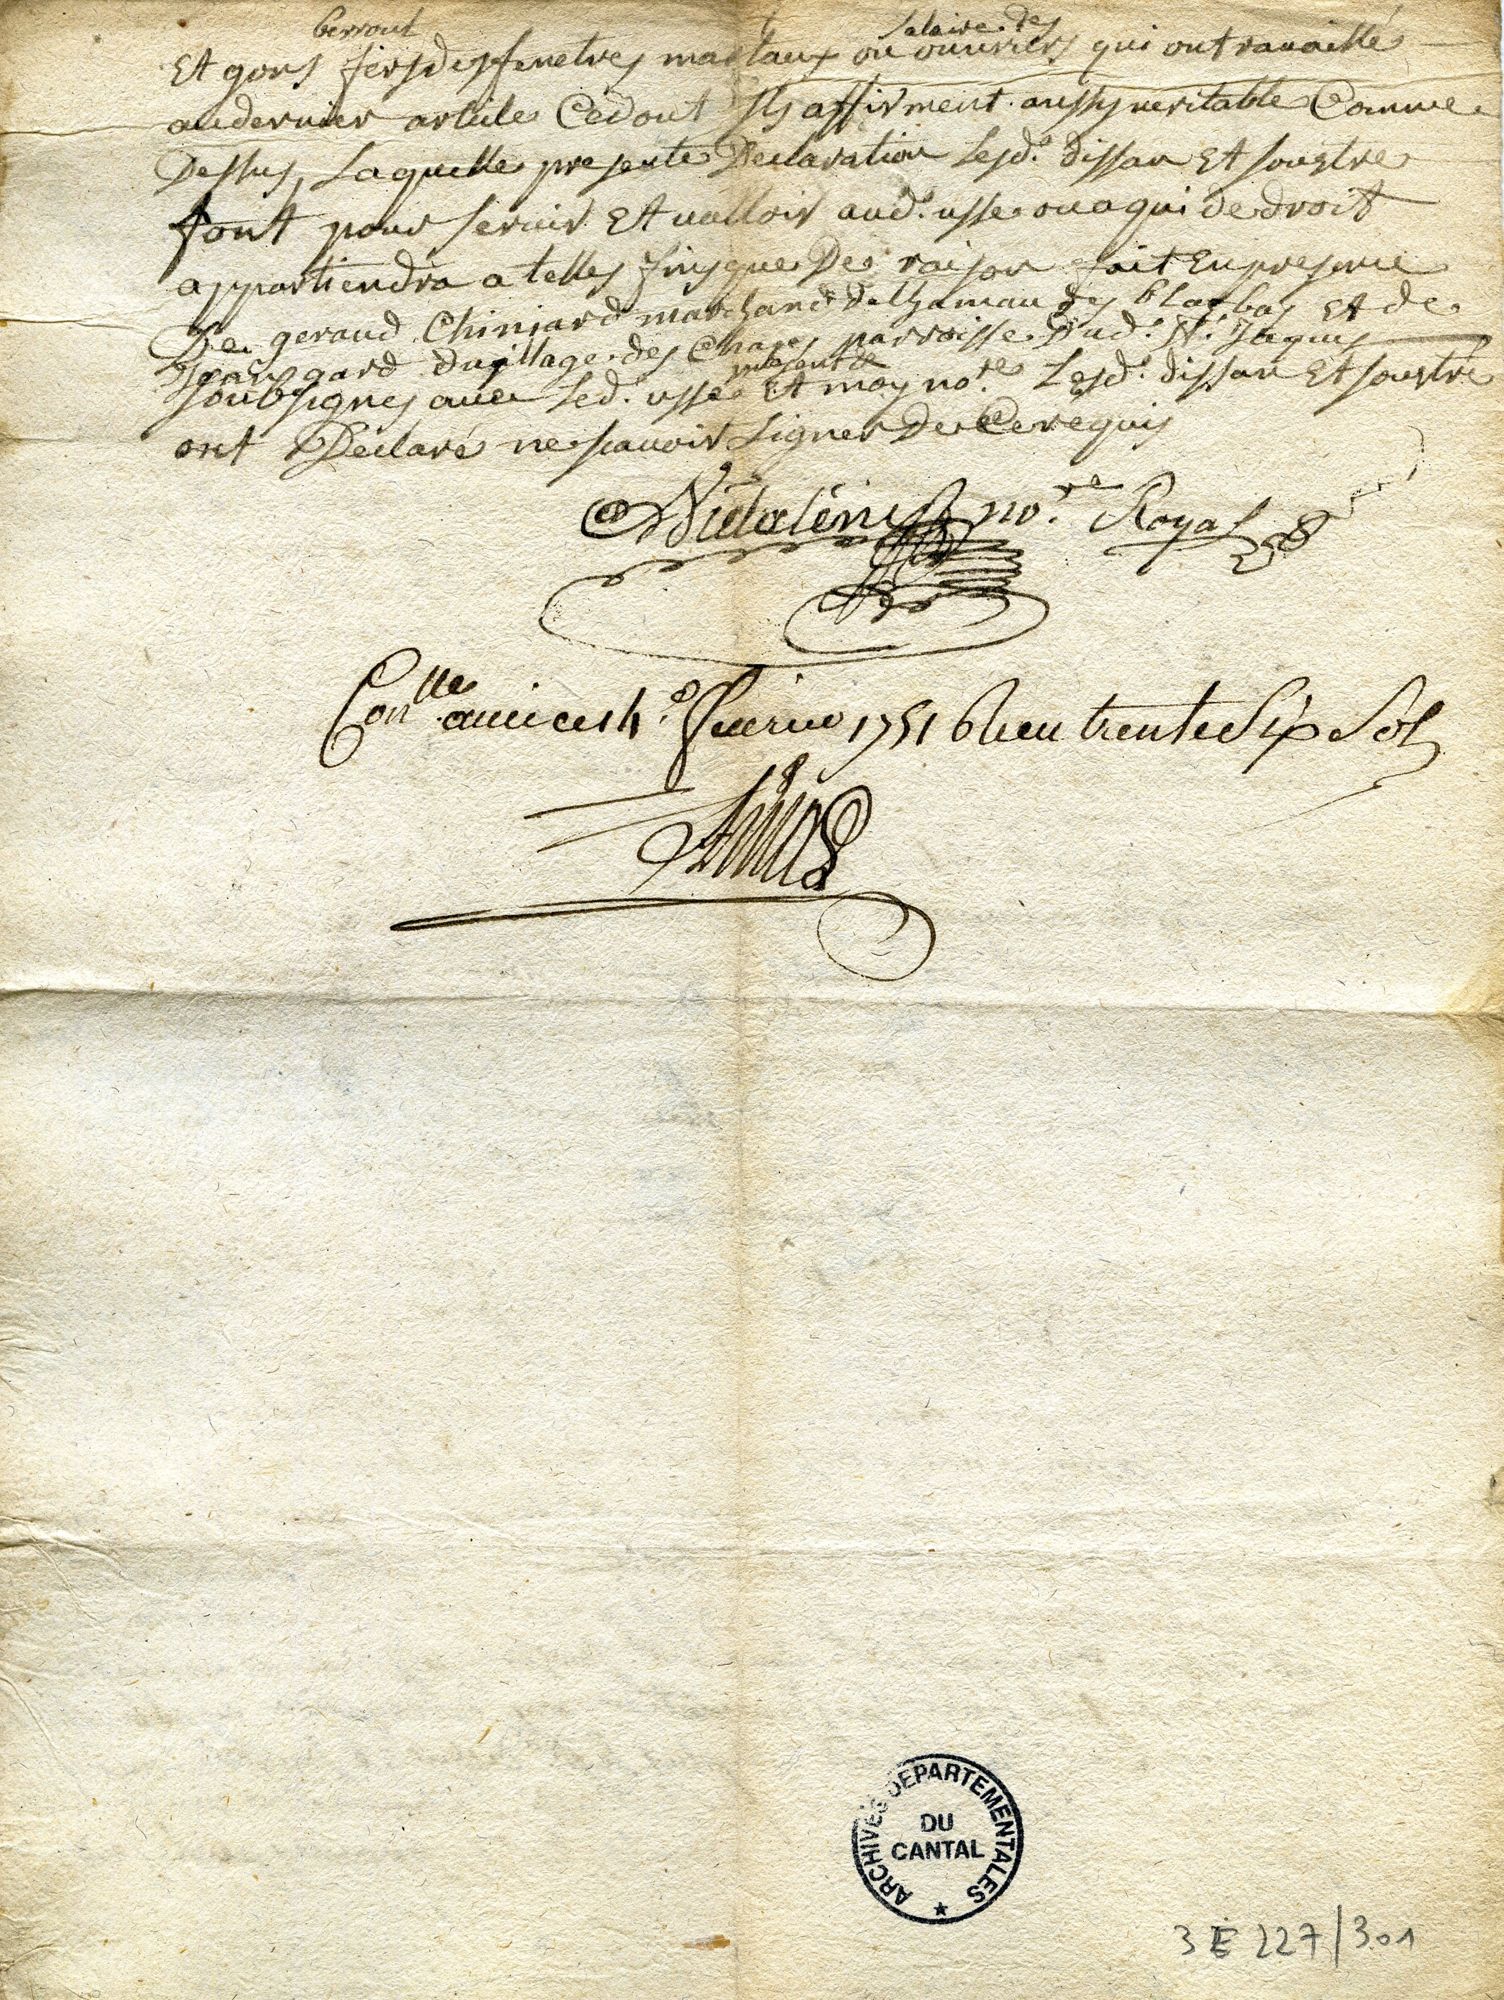 berrout salaire des
Et gons fers des fenetres ou ouvriers qui ont travaillé
au dernier article Ce dont Ils affirment aussy veritable Comme
Dessus, Laquelle presente Declaration Lesd.s dissan Et soustre
font pour servir Et valloir aud.s usse ou a qui de droit
appartiendra a telles fins que De raison fait En presence
De geraud Chinjard marchand de lhamau des Et de
Jean gard du village des parroisse dud.s St Jaques
present
soubsignes avec Led.s usse Et moy no.re Lesd.s dissan Et soustre
ont Declaré ne scavoir signer De Ce requis
Vidalenc no.re Royal
Con.lle a ce 14.e fevrier 1751 Reçu trente six sols
ARCHIVES DEPARTEMENTALES
DU
CANTAL
3 E 227/301